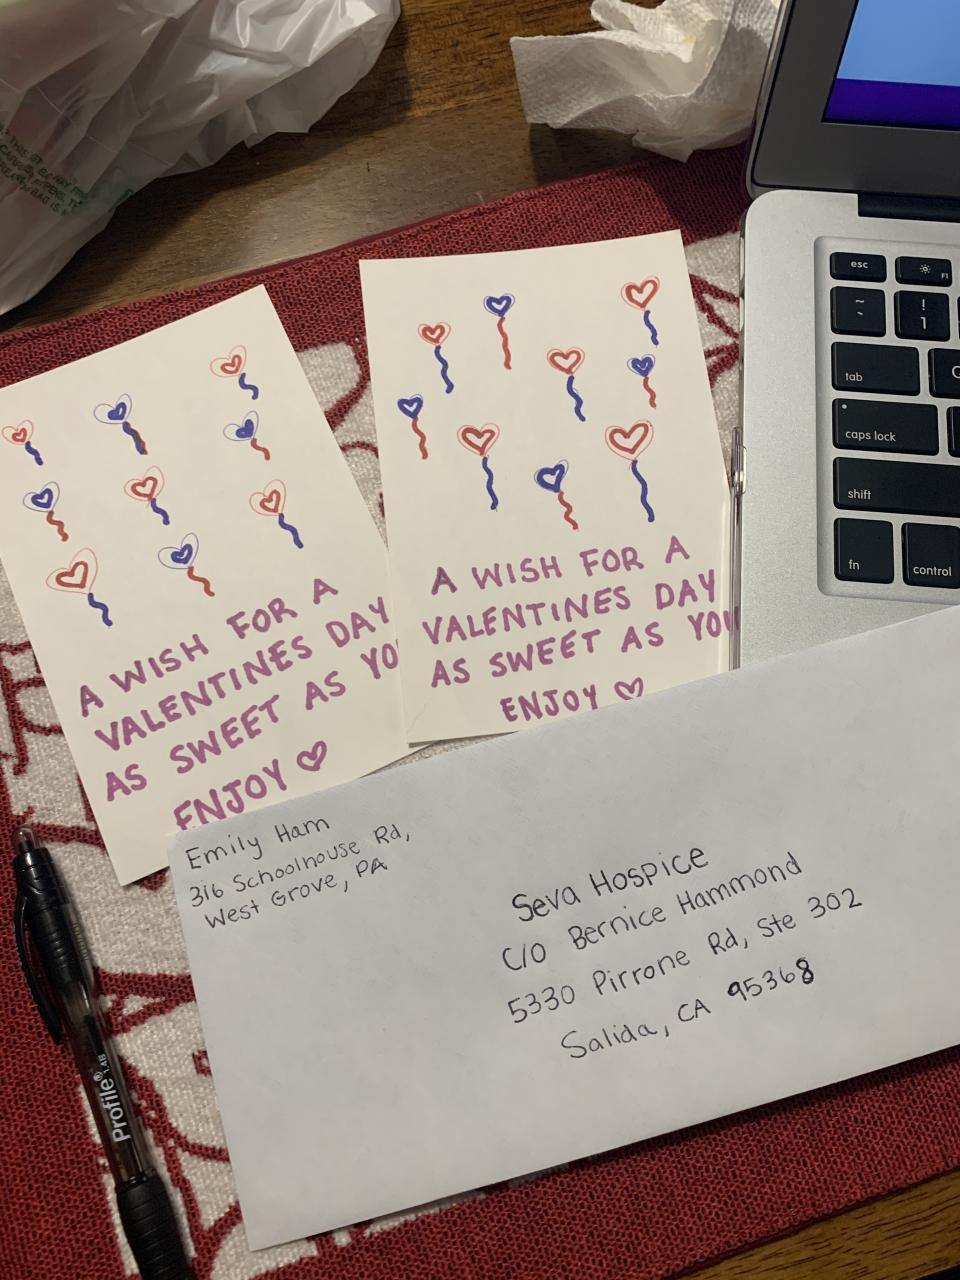 esc
F1
~
`
!
1
tab
caps lock
shift
fn
control
A WISH FOR A
VALENTINES DAY
AS SWEET AS
ENJOY ♡
A WISH FOR A
VALENTINES DAY
AS SWEET AS YOU
ENJOY ♡
Emily Ham
316 Schoolhouse Rd,
West Grove, PA
Seva Hospice
C/O Bernice Hammond
5330 Pirrone Rd, Ste 302
Salida, CA 95368
Profile® 1.4B